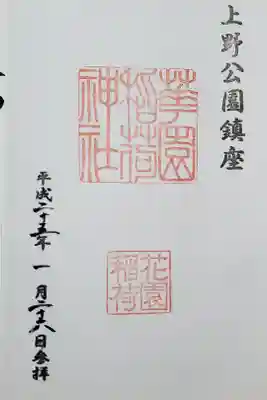 上野公園鎮座
華園
稲荷
神社
花園
稲荷
平成二十五年 一月二十八日参拝